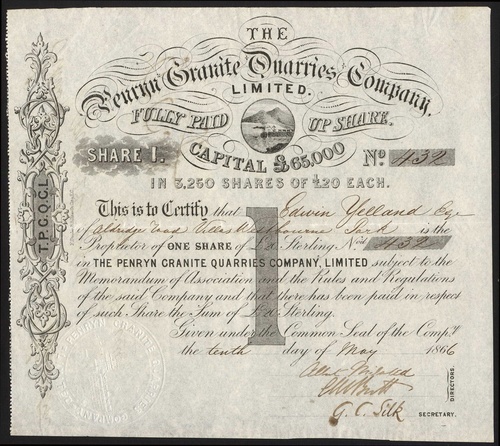 THE
Penryn Granite Quarries Company,
LIMITED.
FULLY PAID UP SHARE.
SHARE 1.
CAPITAL £65,000
No. 432
IN 3,250 SHARES OF £20 EACH.
This is to Certify that Edwin Yelland Esqr
of Aldridge Road Villas Westbourne Park is the
Proprietor of ONE SHARE of £20 Sterling No. 432
in THE PENRYN GRANITE QUARRIES COMPANY, LIMITED subject to the
Memorandum of Association and the Rules and Regulations
of the said Company and that there has been paid in respect
of such Share the Sum of £20 Sterling.
Given under the Common Seal of the Compy.
the tenth day of May 1866
DIRECTORS.
G. C. Silk SECRETARY.
T.P.G.Q.C.L.
1